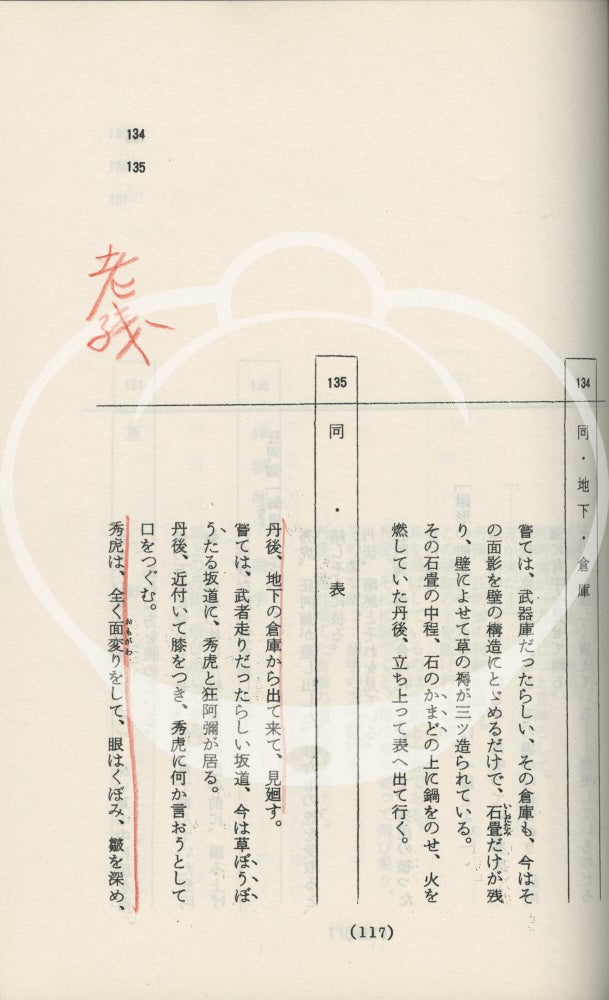 134
135
134
同・地下・倉庫
嘗ては、武器庫だったらしい、その倉庫も、今はそ
の面影を壁の構造にとゞめるだけで、石畳だけが残
いしだたみ
り、壁によせて草の褥が三ツ造られている。
その石畳の中程、石のかまどの上に鍋をのせ、火を
燃していた丹後、立ち上って表へ出て行く。
135
同・表
丹後、地下の倉庫から出て来て、見廻す。
嘗ては、武者走りだったらしい坂道、今は草ぼうぼ
うたる坂道に、秀虎と狂阿彌が居る。
丹後、近付いて膝をつき、秀虎に何か言おうとして
口をつぐむ。
秀虎は、全く面変りをして、眼はくぼみ、皺を深め、
おもがわ
老残
(117)